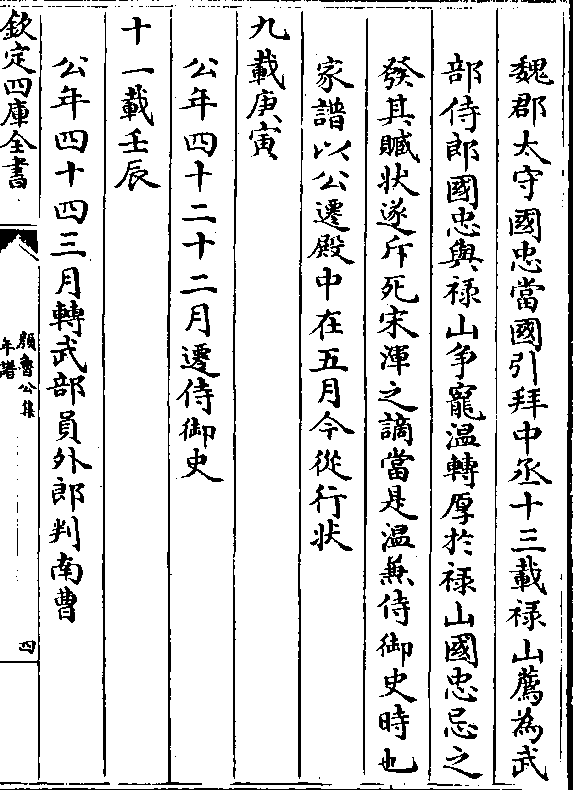 魏郡太守國忠當國引拜中丞十三載禄山薦為武
部侍郎國忠與禄山争寵温轉厚於禄山國忠忌之
發其贓狀遂斥死宋渾之謫當是温兼侍御史時也
家譜以公遷殿中在五月今從行状
九載庚寅
公年四十二十二月遷侍御史
十一載壬辰
公年四十四三月轉武部員外郎判南曹
欽定四庫全書
顔魯公集
年譜
四